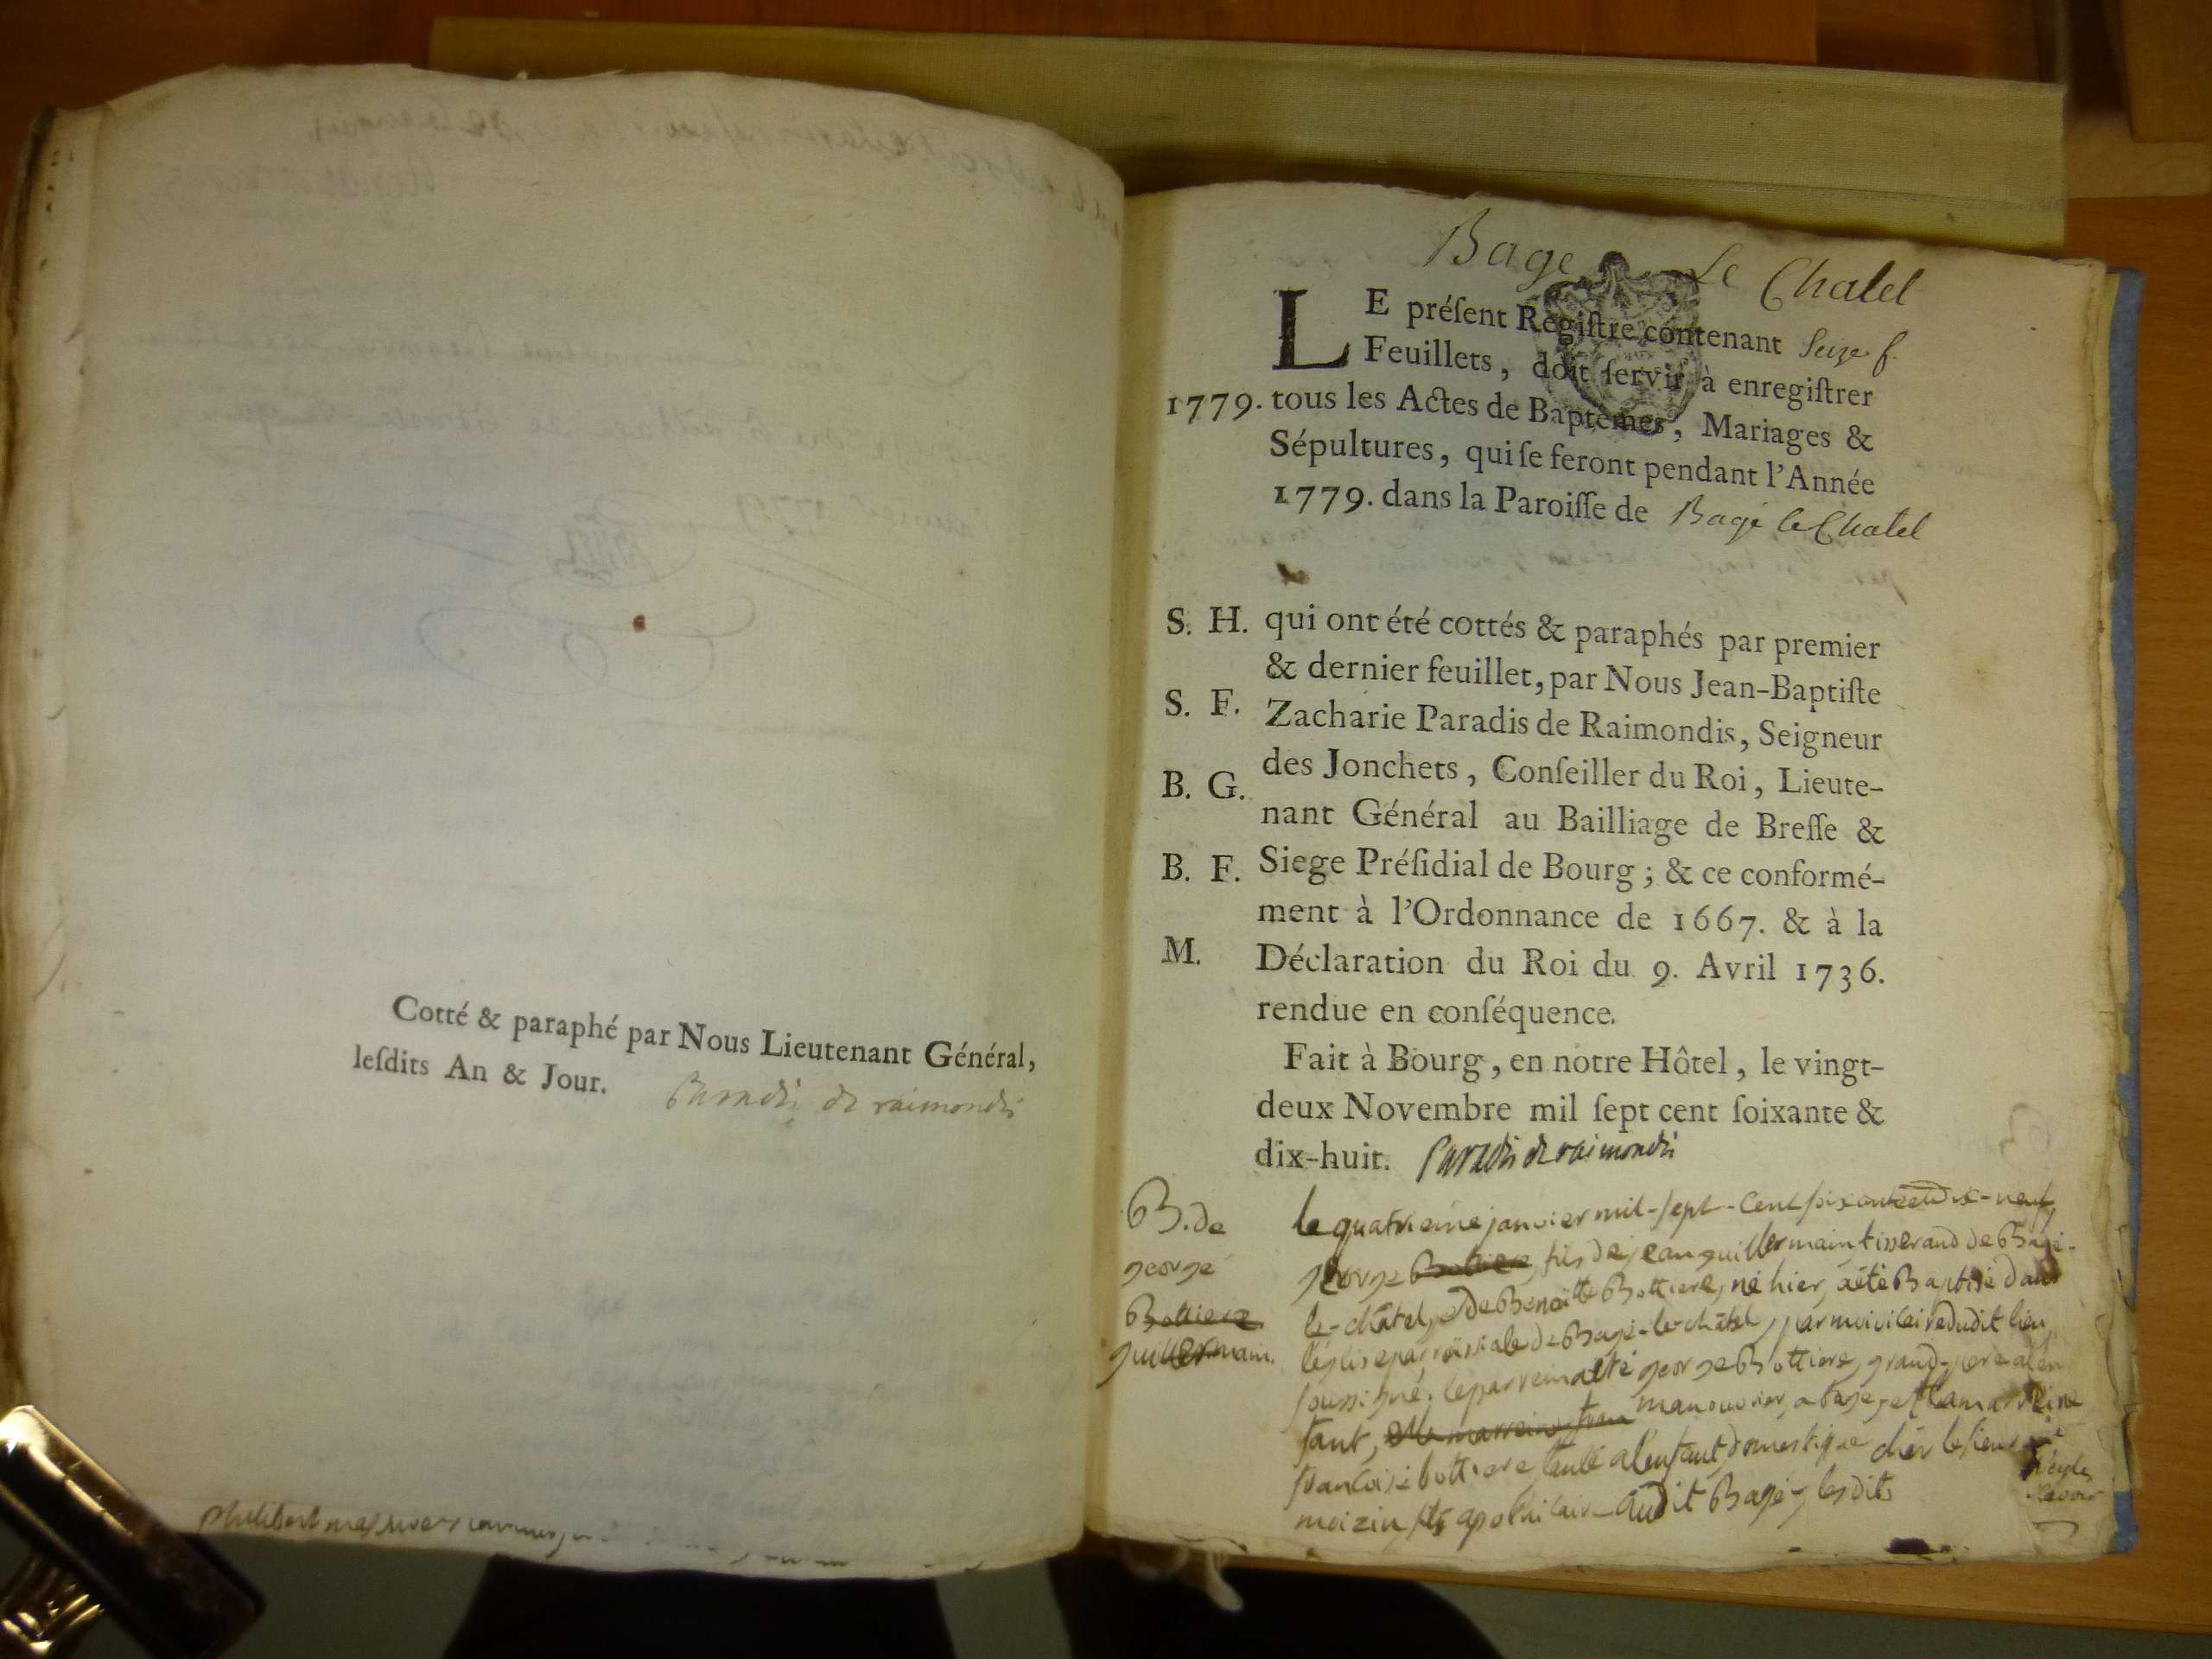 Cotté & paraphé par Nous Lieutenant Général,
leſdits An & Jour. Paradis de raimondis
Bage Le Chatel
LE préſent Regiſtre contenant Seize f.
Feuillets, doit ſervir à enregiſtrer
1779. tous les Actes de Baptêmes, Mariages &
Sépultures, qui ſe feront pendant l'Année
1779. dans la Paroiſſe de Bagé le Chatel
S. H. qui ont été cottés & paraphés par premier
& dernier feuillet, par Nous Jean-Baptiſte
S. F. Zacharie Paradis de Raimondis, Seigneur
des Jonchets, Conſeiller du Roi, Lieute-
B. G. nant Général au Bailliage de Breſſe &
B. F. Siege Préſidial de Bourg ; & ce conformé-
ment à l'Ordonnance de 1667. & à la
M. Déclaration du Roi du 9. Avril 1736.
rendue en conſéquence.
Fait à Bourg, en notre Hôtel, le vingt-
deux Novembre mil ſept cent ſoixante &
dix-huit. Paradis de raimondis
B. de
george
Bottiere
guillermain.
le quatrieme janvier mil-sept-cent soixante et dix-neuf,
george Bottiere, fils de jean guillermain tisserand de Bagé-
le-châtel, et de Benoitte Bottiere, né hier, a été Baptisé dans
l'église parroissiale de Bagé-le-châtel, par moi vicaire dudit lieu
soussigné. le parrein a été george Bottiere, grand-pere a l'en
fant, manouvrier, a bagé, et la marreine
francoise bottiere, tente a l'enfant, domestique chés le sieur
moizin apothicaire audit Bagé, lesdits